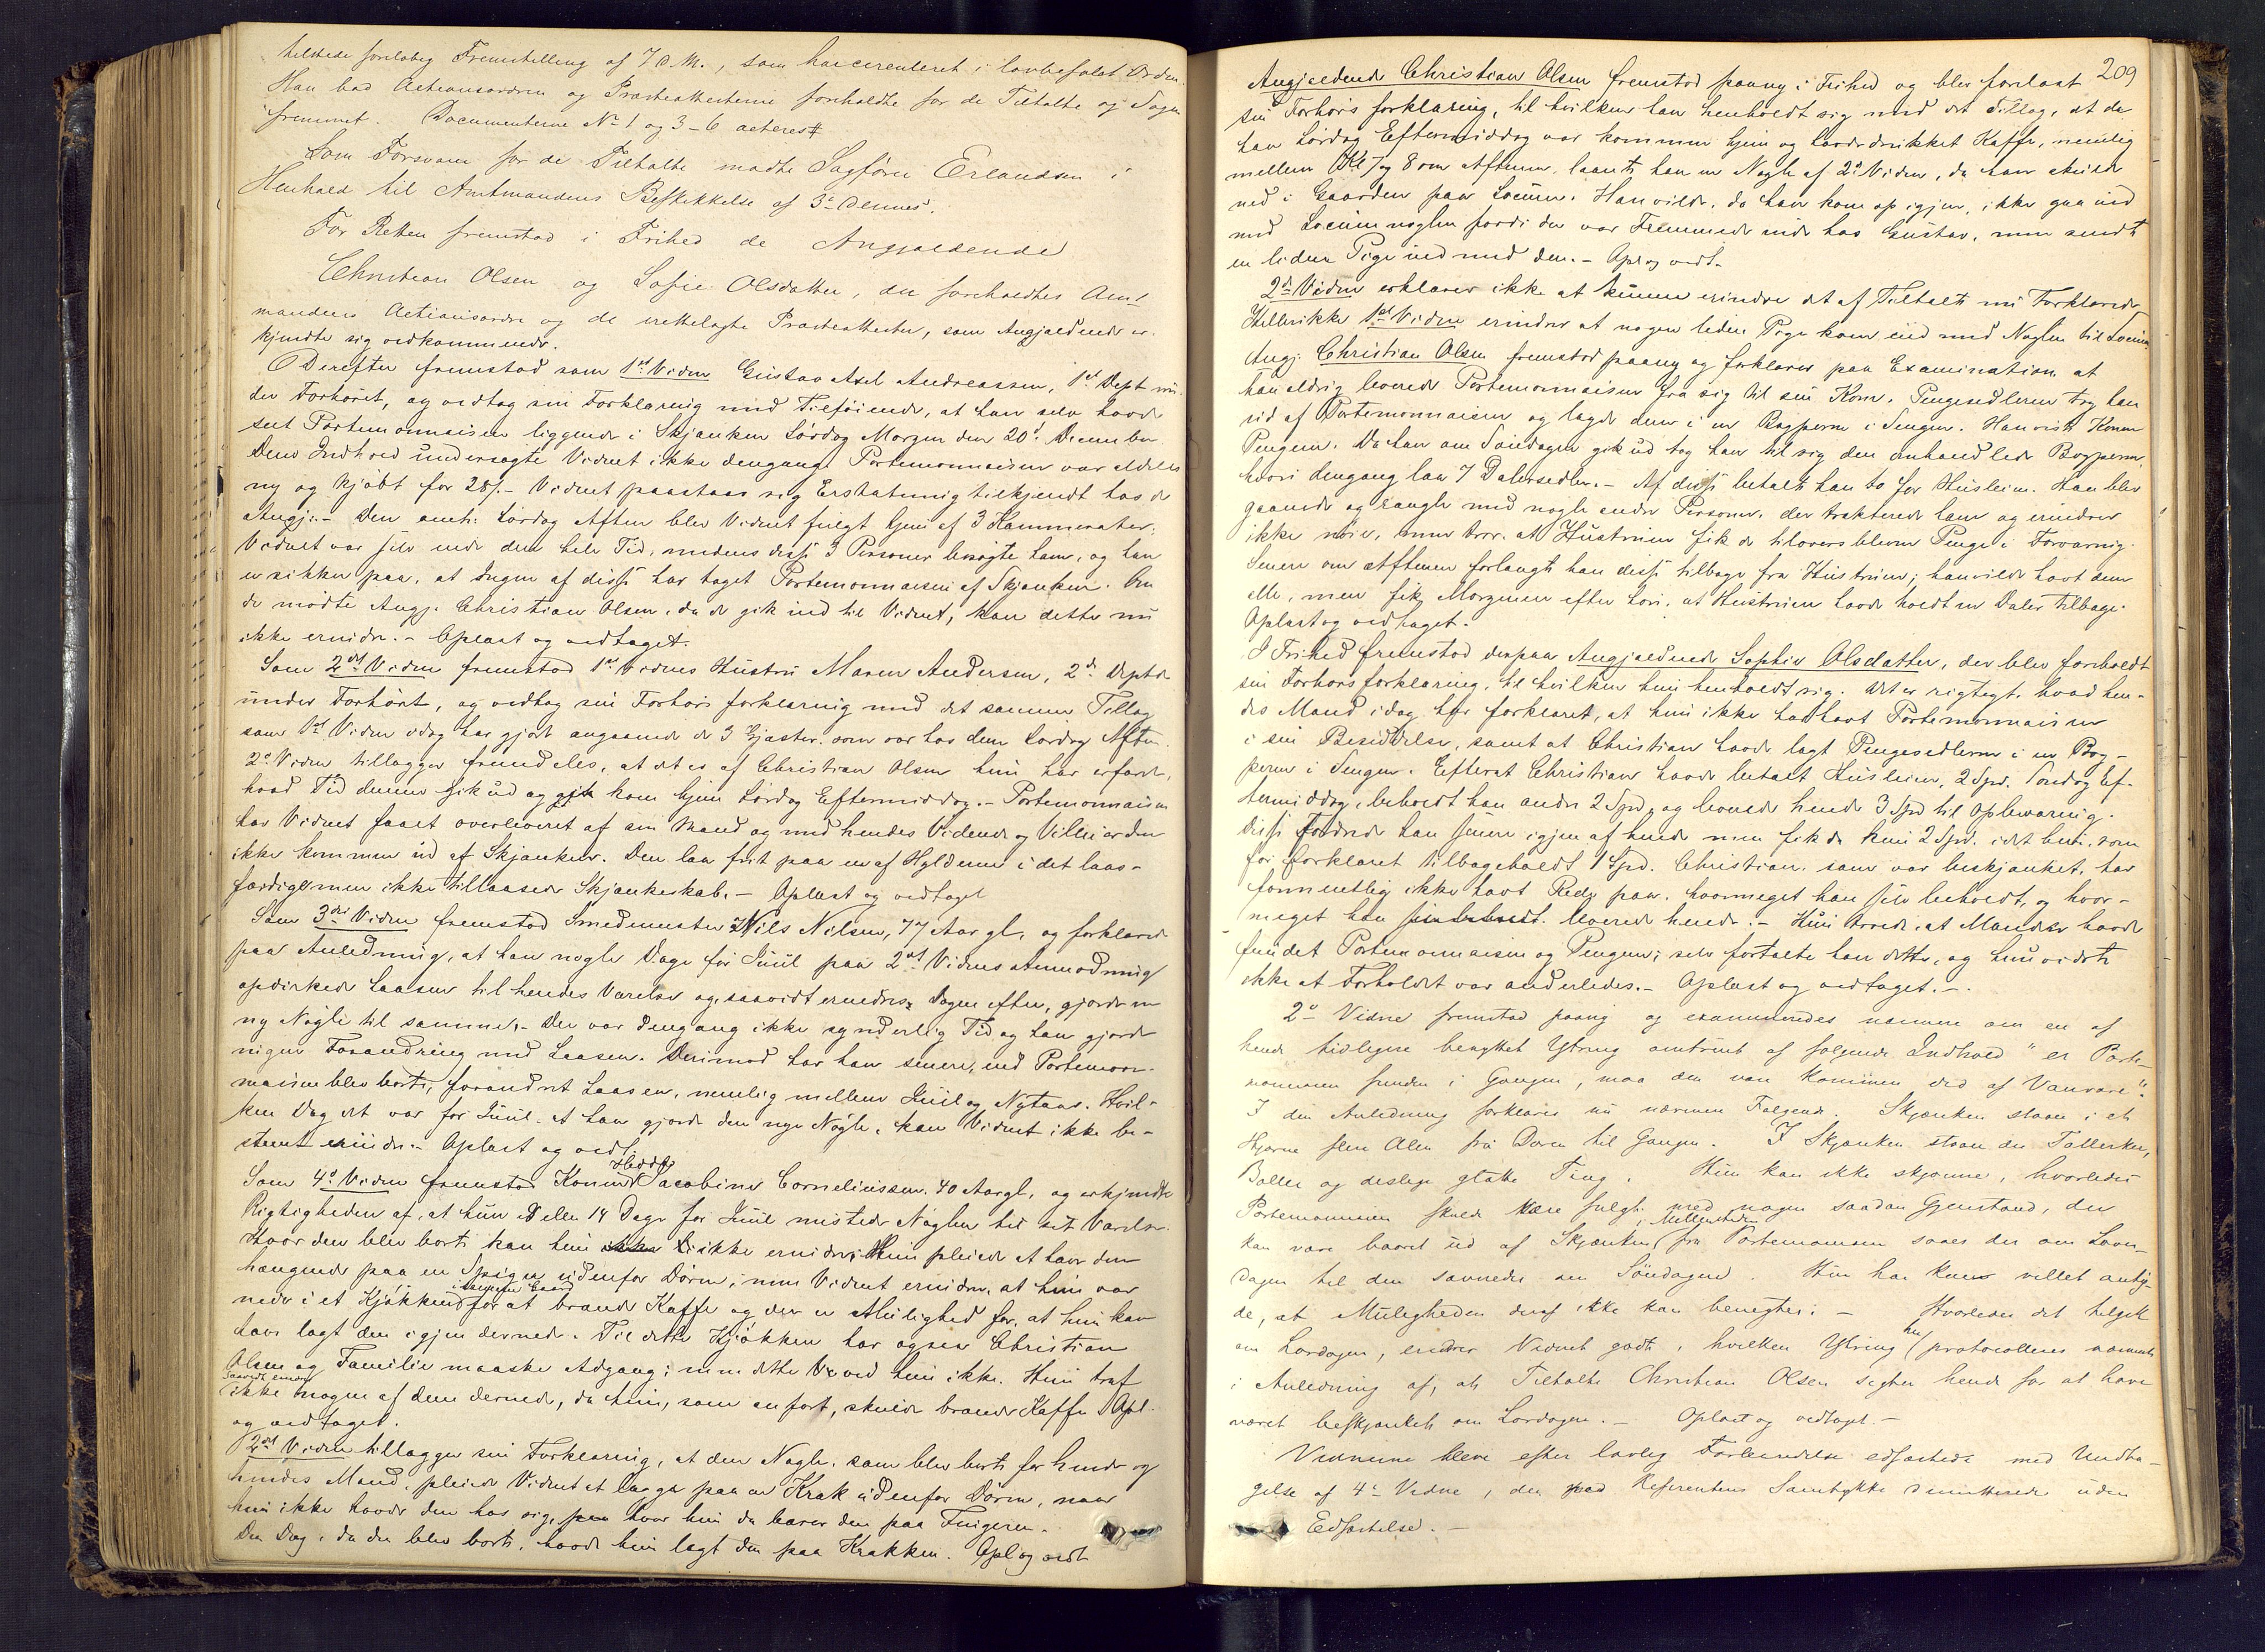 tilstede foreløbig Fremstilling af 7 d. M., som har cirenleret i lovbefalet Orden.
Han bad Actionsordren og Præsteattesterne foreholdte for de Tiltalte og Sagen
fremmet. Documenterne No 1 og 3-6 acteres #
Som Forsvarer for de Tiltalte mødte Sagfører Erlandsen i
Henhold til Amtmandens Beskikkelse af 3die dennes.
For Retten fremstod i Frihed de Angjældende
Christian Olsen og Sofie Olsdatter, der foreholdtes Amt-
mandens Actionsordre og de irettelagte Præsteattester, som Angjældende er-
kjendte sig vedkommende.
Derefter fremstod som 1ste Vidne Gustav Axel Andreassen, 1st Dept un-
der Forhøret, og vedtog sin Forklaring med Tilføiende, at han selv havde
seet Portemonnaien liggende i Skjænken Lørdag Morgen den 20d December
Dens Indhold undersøgte Vidnet ikke dengang. Portemonnaien var aldeles
ny og kjøbt for 28 s. - Vidnet paastaar sig Erstatning tilkjendt hos de
Angj:- Den omh: Lørdag Aften blev Vidnet fulgt hjem af 3 Kammerater.
Vidnet var selv inde den hele Tid, medens disse 3 Personer besøgte ham, og han
er sikker paa, at Ingen af disse har taget Portemonnaien af Skjænken. Om
de mødte Angj. Christian Olsen, da de gik ind til Vidnet, kan dette nu
ikke erindre. - Oplæst og vedtaget.
Som 2det Vidne fremstod 1st Vidnes Hustru Maren Andersen, 2d Deptde
under Forhøret, og vedtog sin Forhørs forklaring med det samme Tillæg
som 1st Vidne idag har gjort angaaende de 3 Gjæster, som var hos dem Lørdag Aften.
2d Vidne tillægger fremdeles, at det er af Christian Olsen hun har erfaret,
hvad Tid denne gik ud og kom hjem Lørdag Eftermiddag. - Portemonnaien
har Vidnet faaet overleveret af sin Mand og med hendes Vidende og Villie er den
ikke kommen ud af Skjænken. Den laa frit paa en af Hylderne i det laas-
færdige men ikke tillaasede Skjænkeskab. - Oplæst og vedtaget
Som 3die Vidne fremstod Smedemester Nils Nilsen, 77 Aar gl. og forklarede
paa Anledning, at han nogle Dage før Juul paa 2det Vidnes Anmodning
opdirkede Laasen til hendes Værelse og, saavidt erindres, Dagen efter, gjorde en
ny Nøgle til samme. - Der var dengang ikke synderlig Tid og han gjorde
ingen Forandring med Laasen. Derimod har han senere, end Portemon-
naien blev borte, forandret Laasen, nemlig mellem Juul og Nytaar. Hvil-
ken Dag det var før Juul, at han gjorde den nye Nøgle, kan Vidnet ikke be-
stemt erindre. - Oplæst og vedt.
Som 4d Vidne fremstod Konen Hedda Jacobine Corneliussen, 40 Aar gl. og erkjendte
Rigtigheden af, at hun 8 eller 14 Dage før Juul mistede Nøglen til sit Værelse.
Hvor den blev borte kan hun ikke erindre; Hun pleiede at have den
hængende paa en Spiger udenfor Døren; men Vidnet erindrer, at hun var
nede i et Kjøkken i samme Gaard for at brænde Kaffe og der er Mulighed for, at hun kan
have lagt den igjen dernede. Til dette Kjøkken har ogsaa Christian
Olsen og Familie maaske Adgang; men dette ved hun ikke. Hun traf
saavidt erindr. ikke nogen af dem dernede, da hun, som anført, skulde brænde Kaffe. Opl.
og vedtaget.
2det Vidne tillægger sin Forklaring, at den Nøgle, som blev borte for hende og
hendes Mand, pleiede Vidnet at lægge paa en Krak udenfor Døren, naar
hun ikke havde den hos sig, hvor hun da bærer den paa Fingeren.
Den Dag, da den blev borte, havde hun lagt den paa Krakken. Opl og vedt
209
Angjældende Christian Olsen fremstod paany i Frihed og blev forelæst
sin Forhørs forklaring, til hvilken han henholdt sig med det Tillæg, at da
han Lørdag Eftermiddag var kommen hjem og havde drukket Kaffe, nemlig
mellem Kl 7 og 8 om Aftenen, laante han en Nøgle af 2d Vidne, da han skulde
ned i Gaarden paa Locum. Han vilde, da han kom op igjen, ikke gaa ind
med Locumnøglen fordi der var Fremmede inde hos Gustav, men sendte
en liden Pige ind med den. - Opl og vedt.
2det Vidne erklærer ikke at kunne erindre det af Tiltalte nu Forklarede.
Hellerikke 1ste Vidne erindrer at nogen liden Pige kom ind med Nøglen til Locum.
Angj. Christian Olsen fremstod paany og forklarer paa Examination at
han aldrig leverede Portemonnaien fra sig til sin Kone. Pengesedlerne tog han
ud af Portemonnaien og lagde dem i en Bogperm i Sengen. Han viste Konen
Pengene. Da han om Søndagen gik ud tog han til sig den omhandlede Bogperm,
hvori dengang laa 7 Dalersedler. - Af disse betalte han to for Husleie. Han blev
gaaende og rangle med nogle andre Personer, der trakterede ham og erindrer
ikke nøie, men tror, at Hustruen fik de tiloversblevne Penge i Forvaring.
Senere om Aftenen forlangte han disse tilbage fra Hustruen; han vilde havt dem
alle, men fik Morgenen efter høre, at Hustruen havde holdt en Daler tilbage.
Oplæst og vedtaget.
I Frihed fremstod derpaa Angjældende Sophie Olsdatter, der blev foreholdt
sin Forhørs forklaring, til hvilken hun henholdt sig. Det er rigtigt, hvad hen-
des Mand idag har forklaret, at hun ikke har havt Portemonnaien
i sin Besiddelse, samt at Christian havde lagt Pengesedlerne i en Bog-
perm i Sengen. Efterat Christian havde betalt Husleien, 2 Spd. Søndag Ef-
termiddag, beholdt han andre 2 Spd, og leverede hende 3 Spd til Opbevaring.
Disse fordrede han senere igjen af hende men fik da kun 2 Spd. idet hun, som
før forklaret tilbageholdt 1 Spd. Christian, som var beskjænket, har
formentlig ikke havt Rede paa, hvormeget han selv beholdt, og hvor-
meget han leverede hende. - Hun troede, at Manden havde
fundet Portemonnaien og Pengene; selv fortalte han dette, og hun vidste
ikke at Forholdet var anderledes. - Oplæst og vedtaget. -
2d Vidne fremstod paany og examineredes nærmere om en af
hende tidligere benyttet Ytring omtrent af følgende Indhold "er Porte-
monnaien funden i Gangen, maa den være kommen did af Vanvare".
I den Anledning forklares nu nærmere Følgende. Skjænken staar i et
Hjørne flere Alen fra Døren til Gangen. I Skjænken staar der Tallerkener,
Boller og deslige glatte Ting. Hun kan ikke skjønne, hvorledes
Portemonnaien skulde være fulgt med nogen saadan Gjenstand, der
kan være baaret ud af Skjænken i Mellemtiden fra Portemonnaien saaes der om Lør-
dagen til den savnedes om Søndagen. Hun har kun villet antyde-
de, at Muligheden deraf ikke kan benegtes. - Hvorledes det tilgik
om Lørdagen, erindrer Vidnet godt, hvilken Ytring hun protocolleres nærmest
i Anledning af, at Tiltalte Christian Olsen sigter hende for at have
været beskjænket om Lørdagen. - Oplæst og vedtaget. -
Vidnerne bleve efter lovlig Forberedelse edfæstede med Undta-
gelse af 4de Vidne, der med Referentens Samtykke dimitteredes uden
Edfæstelse. -